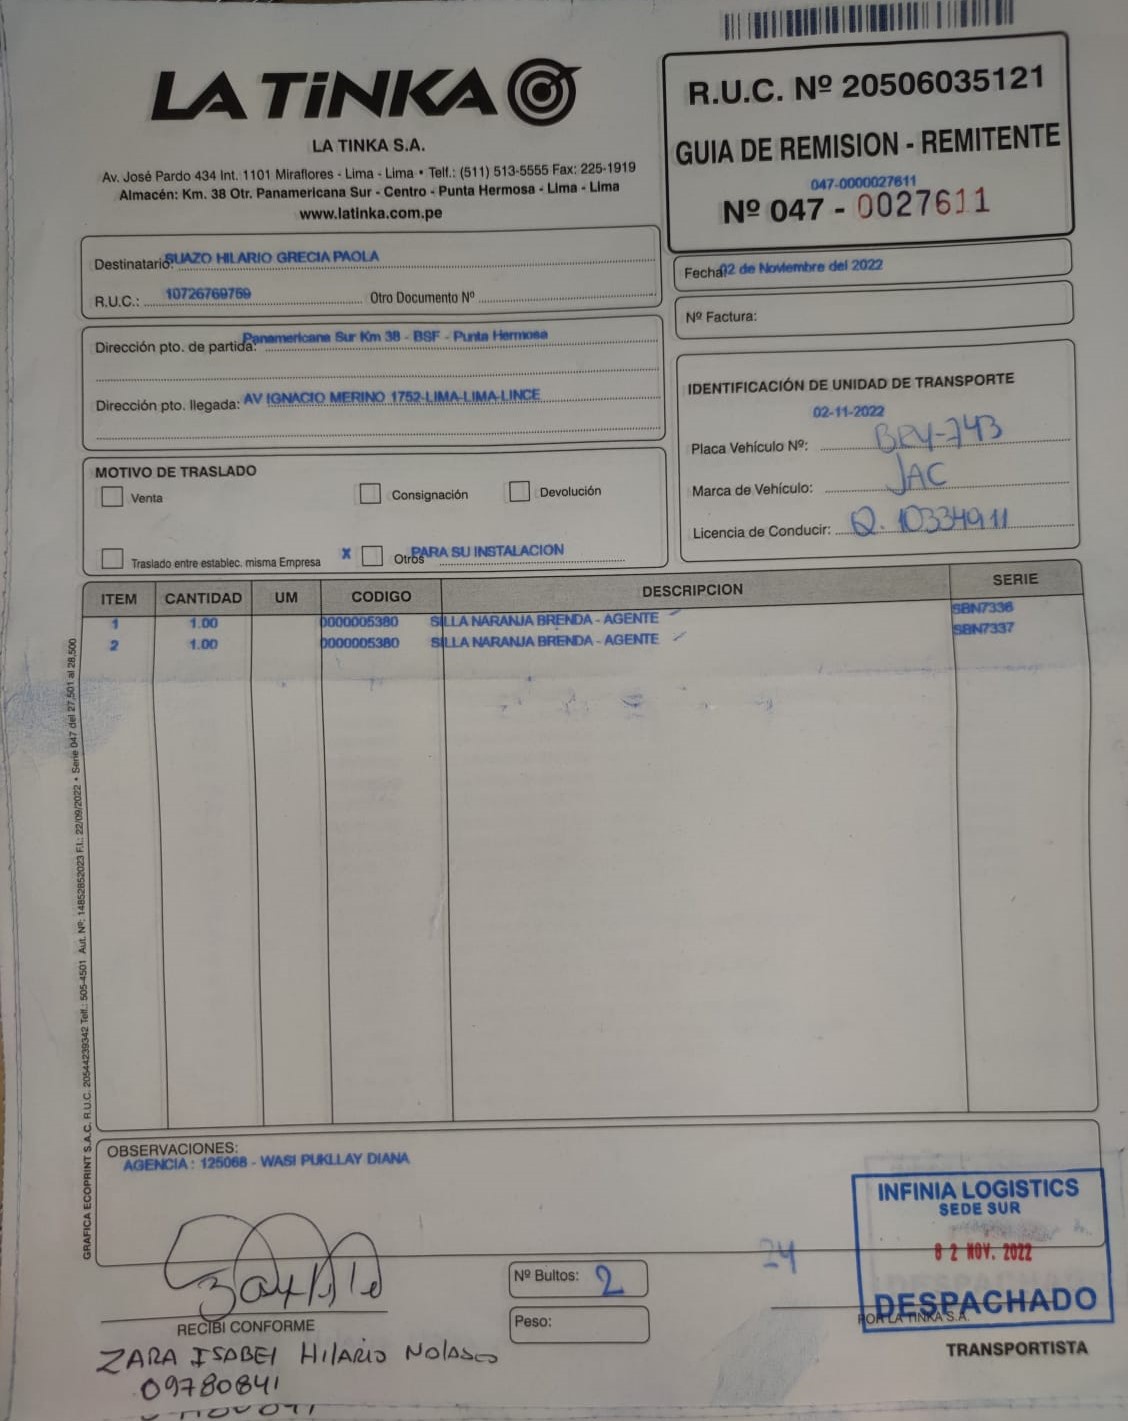 LA TiNKA
LA TINKA S.A.
Av. José Pardo 434 Int. 1101 Miraflores - Lima - Lima • Telf.: (511) 513-5555 Fax: 225-1919
Almacén: Km. 38 Otr. Panamericana Sur - Centro - Punta Hermosa - Lima - Lima
www.latinka.com.pe
R.U.C. Nº 20506035121
GUIA DE REMISION - REMITENTE
047-0000027611
Nº 047 - 0027611
Destinatario: SUAZO HILARIO GRECIA PAOLA
R.U.C.: 10726769759 Otro Documento Nº
Fecha: 02 de Noviembre del 2022
Nº Factura:
Dirección pto. de partida: Panamericana Sur Km 38 - BSF - Punta Hermosa
Dirección pto. llegada: AV IGNACIO MERINO 1752-LIMA-LIMA-LINCE
IDENTIFICACIÓN DE UNIDAD DE TRANSPORTE
02-11-2022
Placa Vehículo Nº:
Marca de Vehículo: JAC
Licencia de Conducir: Q. 10334911
MOTIVO DE TRASLADO
Venta Consignación Devolución
Traslado entre establec. misma Empresa X Otros PARA SU INSTALACION
ITEM CANTIDAD UM CODIGO DESCRIPCION SERIE
1 1.00 0000005380 SILLA NARANJA BRENDA - AGENTE SBN7336
2 1.00 0000005380 SILLA NARANJA BRENDA - AGENTE SBN7337
GRAFICA ECOPRINT S.A.C. R.U.C. 20544239342 Telf.: 505-4501 Aut. Nº: 14852852023 F.I.: 22/09/2022 • Serie 047 del 27,501 al 28,500
OBSERVACIONES:
AGENCIA : 125068 - WASI PUKLLAY DIANA
INFINIA LOGISTICS
SEDE SUR
02 NOV. 2022
DESPACHADO
24
Nº Bultos: 2
Peso:
RECIBI CONFORME
POR LA TINKA S.A.
TRANSPORTISTA
ZARA ISABEL HILARIO NOLASCO
09780841